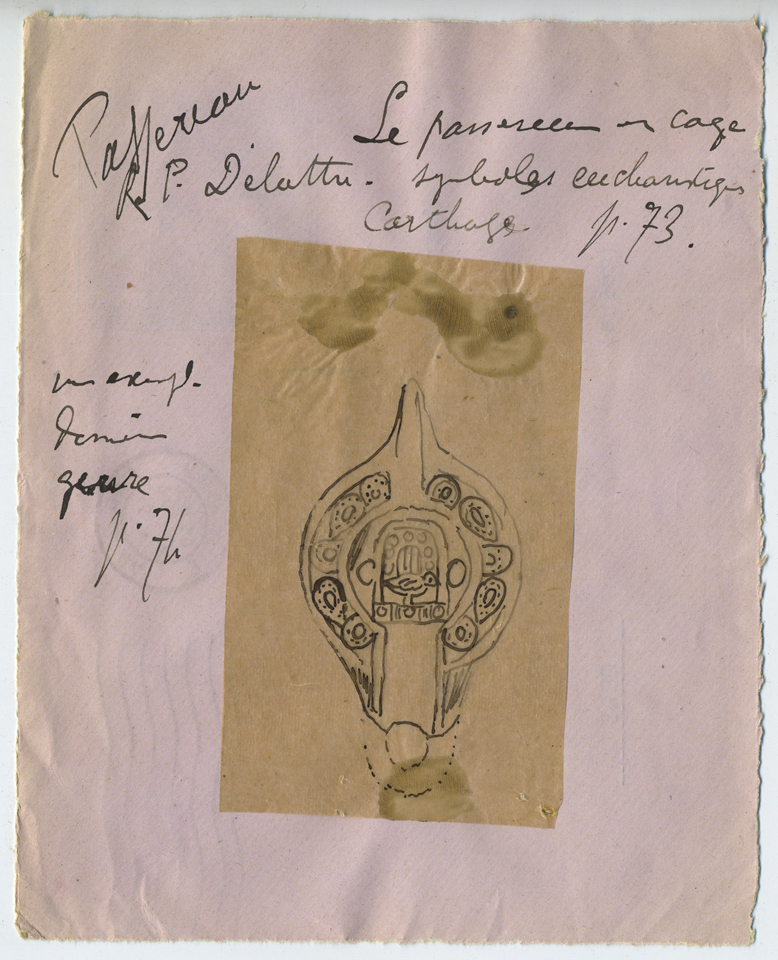 Passereau
Le passereau en cage
R P. Delattre. symboles eucharistiques
Carthage p. 73.
un exempl.
genre
p. 74